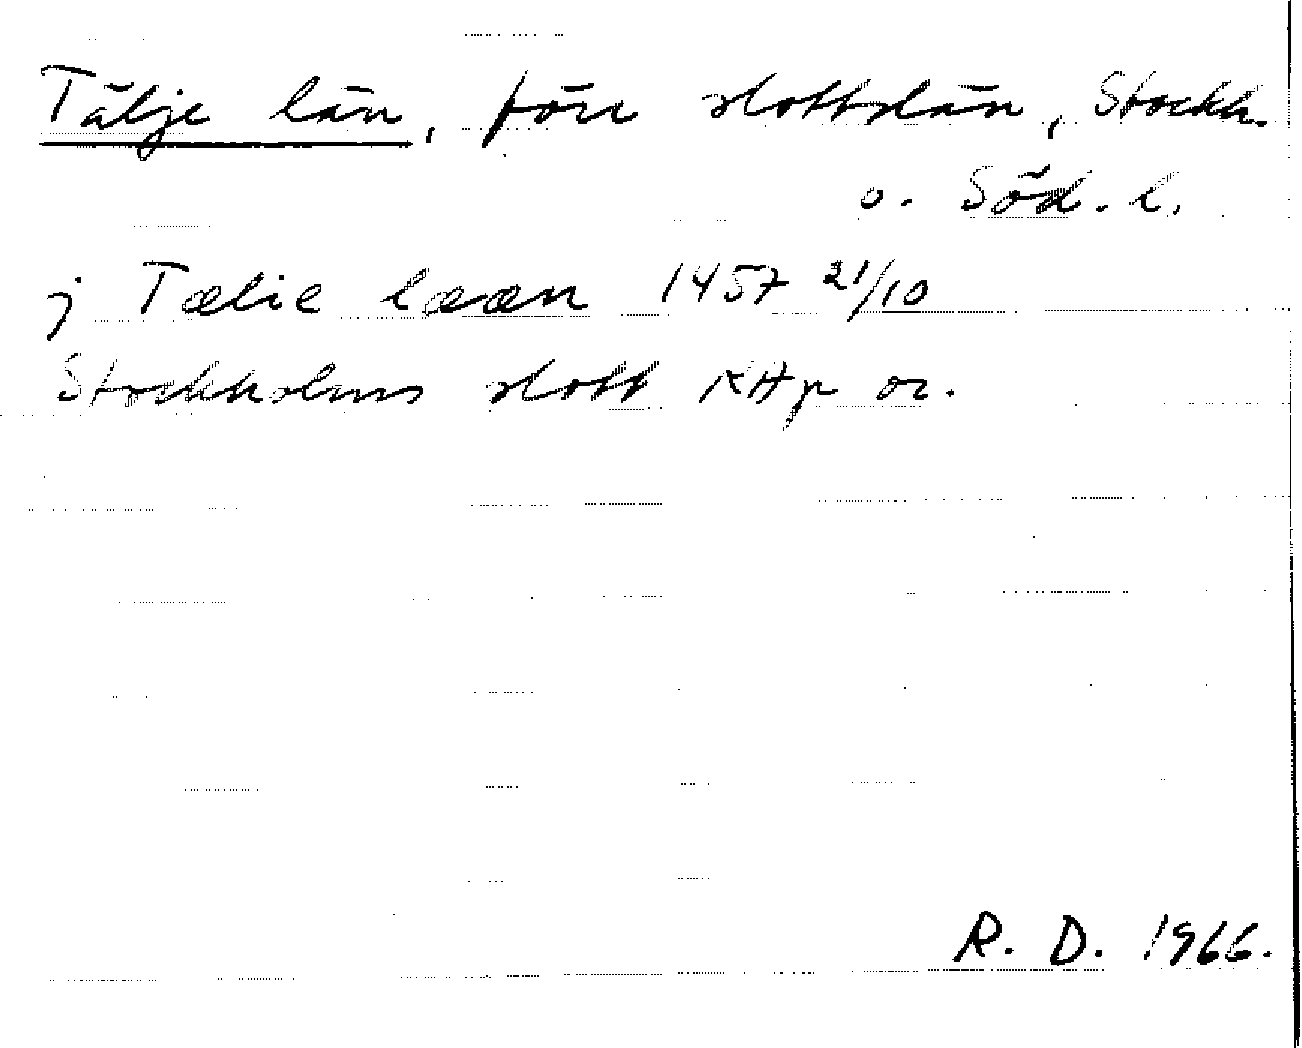 Tälje län, förr slottslän, Stockh.
o. Söd. l.
j Tælie lææn 1457 21/10
Stockholms slott RAp or.
R. D. 1966.